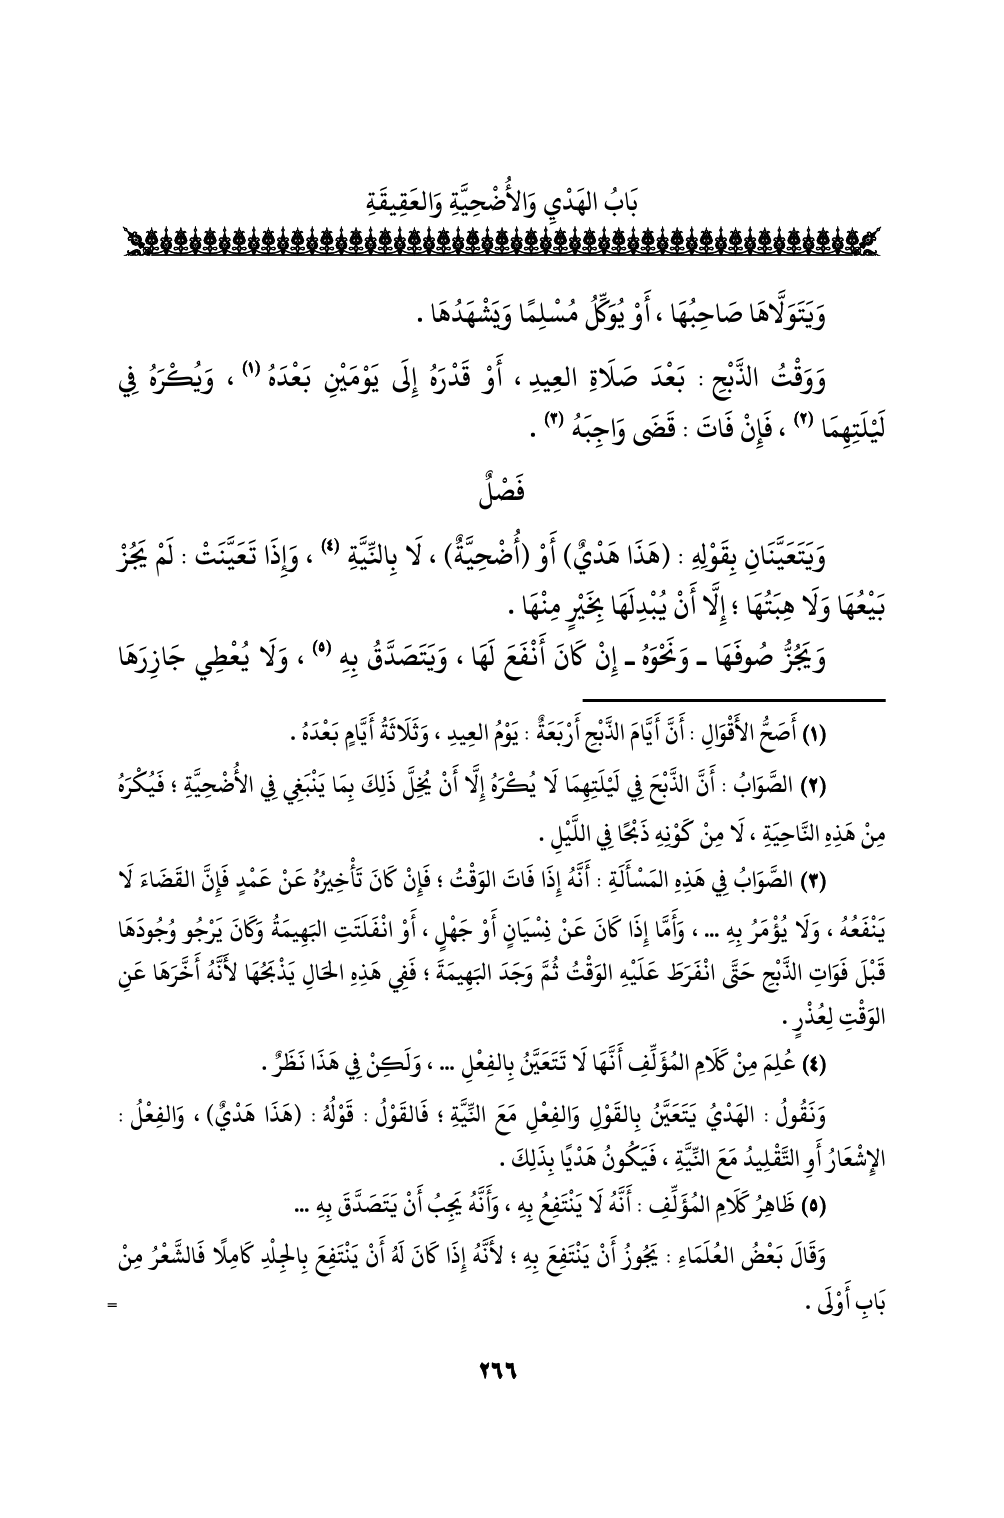 بَابُ الهَدْيِ وَالأُضْحِيَّةِ وَالعَقِيقَةِ
وَيَتَوَلَّاهَا صَاحِبُهَا ، أَوْ يُوَكِّلُ مُسْلِمًا وَيَشْهَدُهَا .
وَوَقْتُ الذَّبْحِ : بَعْدَ صَلَاةِ العِيدِ ، أَوْ قَدْرَهُ إِلَى يَوْمَيْنِ بَعْدَهُ (١) ، وَيُكْرَهُ فِي
لَيْلَتِهِمَا (٢) ، فَإِنْ فَاتَ : قَضَى وَاجِبَهُ (٣) .
فَصْلٌ
وَيَتَعَيَّنَانِ بِقَوْلِهِ : (هَذَا هَدْيٌ) أَوْ (أُضْحِيَّةٌ) ، لَا بِالنِّيَّةِ (٤) ، وَإِذَا تَعَيَّنَتْ : لَمْ يَجُزْ
بَيْعُهَا وَلَا هِبَتُهَا ؛ إِلَّا أَنْ يُبْدِلَهَا بِخَيْرٍ مِنْهَا .
وَيَجُزُّ صُوفَهَا ـ وَنَحْوَهُ ـ إِنْ كَانَ أَنْفَعَ لَهَا ، وَيَتَصَدَّقُ بِهِ (٥) ، وَلَا يُعْطِي جَازِرَهَا
(١) أَصَحُّ الأَقْوَالِ : أَنَّ أَيَّامَ الذَّبْحِ أَرْبَعَةٌ : يَوْمُ العِيدِ ، وَثَلَاثَةُ أَيَّامٍ بَعْدَهُ .
(٢) الصَّوَابُ : أَنَّ الذَّبْحَ فِي لَيْلَتِهِمَا لَا يُكْرَهُ إِلَّا أَنْ يُخِلَّ ذَلِكَ بِمَا يَنْبَغِي فِي الأُضْحِيَّةِ ؛ فَيُكْرَهُ
مِنْ هَذِهِ النَّاحِيَةِ ، لَا مِنْ كَوْنِهِ ذَبْحًا فِي اللَّيْلِ .
(٣) الصَّوَابُ فِي هَذِهِ المَسْأَلَةِ : أَنَّهُ إِذَا فَاتَ الوَقْتُ ؛ فَإِنْ كَانَ تَأْخِيرُهُ عَنْ عَمْدٍ فَإِنَّ القَضَاءَ لَا
يَنْفَعُهُ ، وَلَا يُؤْمَرُ بِهِ ... ، وَأَمَّا إِذَا كَانَ عَنْ نِسْيَانٍ أَوْ جَهْلٍ ، أَوْ انْفَلَتَتِ البَهِيمَةُ وَكَانَ يَرْجُو وُجُودَهَا
قَبْلَ فَوَاتِ الذَّبْحِ حَتَّى انْفَرَطَ عَلَيْهِ الوَقْتُ ثُمَّ وَجَدَ البَهِيمَةَ ؛ فَفِي هَذِهِ الحَالِ يَذْبَحُهَا لأَنَّهُ أَخَّرَهَا عَنِ
الوَقْتِ لِعُذْرٍ .
(٤) عُلِمَ مِنْ كَلَامِ المُؤَلِّفِ أَنَّهَا لَا تَتَعَيَّنُ بِالفِعْلِ ... ، وَلَكِنْ فِي هَذَا نَظَرٌ .
وَنَقُولُ : الهَدْيُ يَتَعَيَّنُ بِالقَوْلِ وَالفِعْلِ مَعَ النِّيَّةِ ؛ فَالقَوْلُ : قَوْلُهُ : (هَذَا هَدْيٌ) ، وَالفِعْلُ :
الإِشْعَارُ أَوِ التَّقْلِيدُ مَعَ النِّيَّةِ ، فَيَكُونُ هَدْيًا بِذَلِكَ .
(٥) ظَاهِرُ كَلَامِ المُؤَلِّفِ : أَنَّهُ لَا يَنْتَفِعُ بِهِ ، وَأَنَّهُ يَجِبُ أَنْ يَتَصَدَّقَ بِهِ ...
وَقَالَ بَعْضُ العُلَمَاءِ : يَجُوزُ أَنْ يَنْتَفِعَ بِهِ ؛ لأَنَّهُ إِذَا كَانَ لَهُ أَنْ يَنْتَفِعَ بِالجِلْدِ كَامِلًا فَالشَّعْرُ مِنْ
بَابِ أَوْلَى . =
٢٦٦